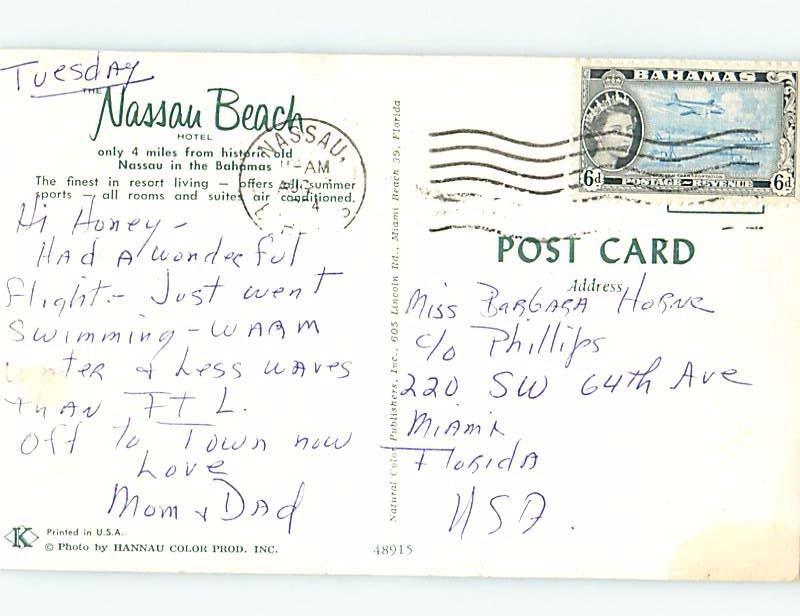 Tuesday
THE
Nassau Beach
HOTEL
only 4 miles from historic old
Nassau in the Bahamas
The finest in resort living — offers all summer
sports — all rooms and suites air conditioned.
Hi Honey -
Had a wonderful
flight - Just went
swimming - warm
water & less waves
than Ft L.
Off to Town now
Love
Mom & Dad
Printed in U.S.A.
K
© Photo by HANNAU COLOR PROD. INC.
48915
Natural Color Publishers, Inc., 605 Lincoln Rd., Miami Beach 39, Florida
NASSAU,
AM
4
BAHAMAS
6d
POSTAGE — REVENUE
6d
POST CARD
Address
Miss Barbara Horne
c/o Phillips
220 SW 64th Ave
Miami
Florida
USA.